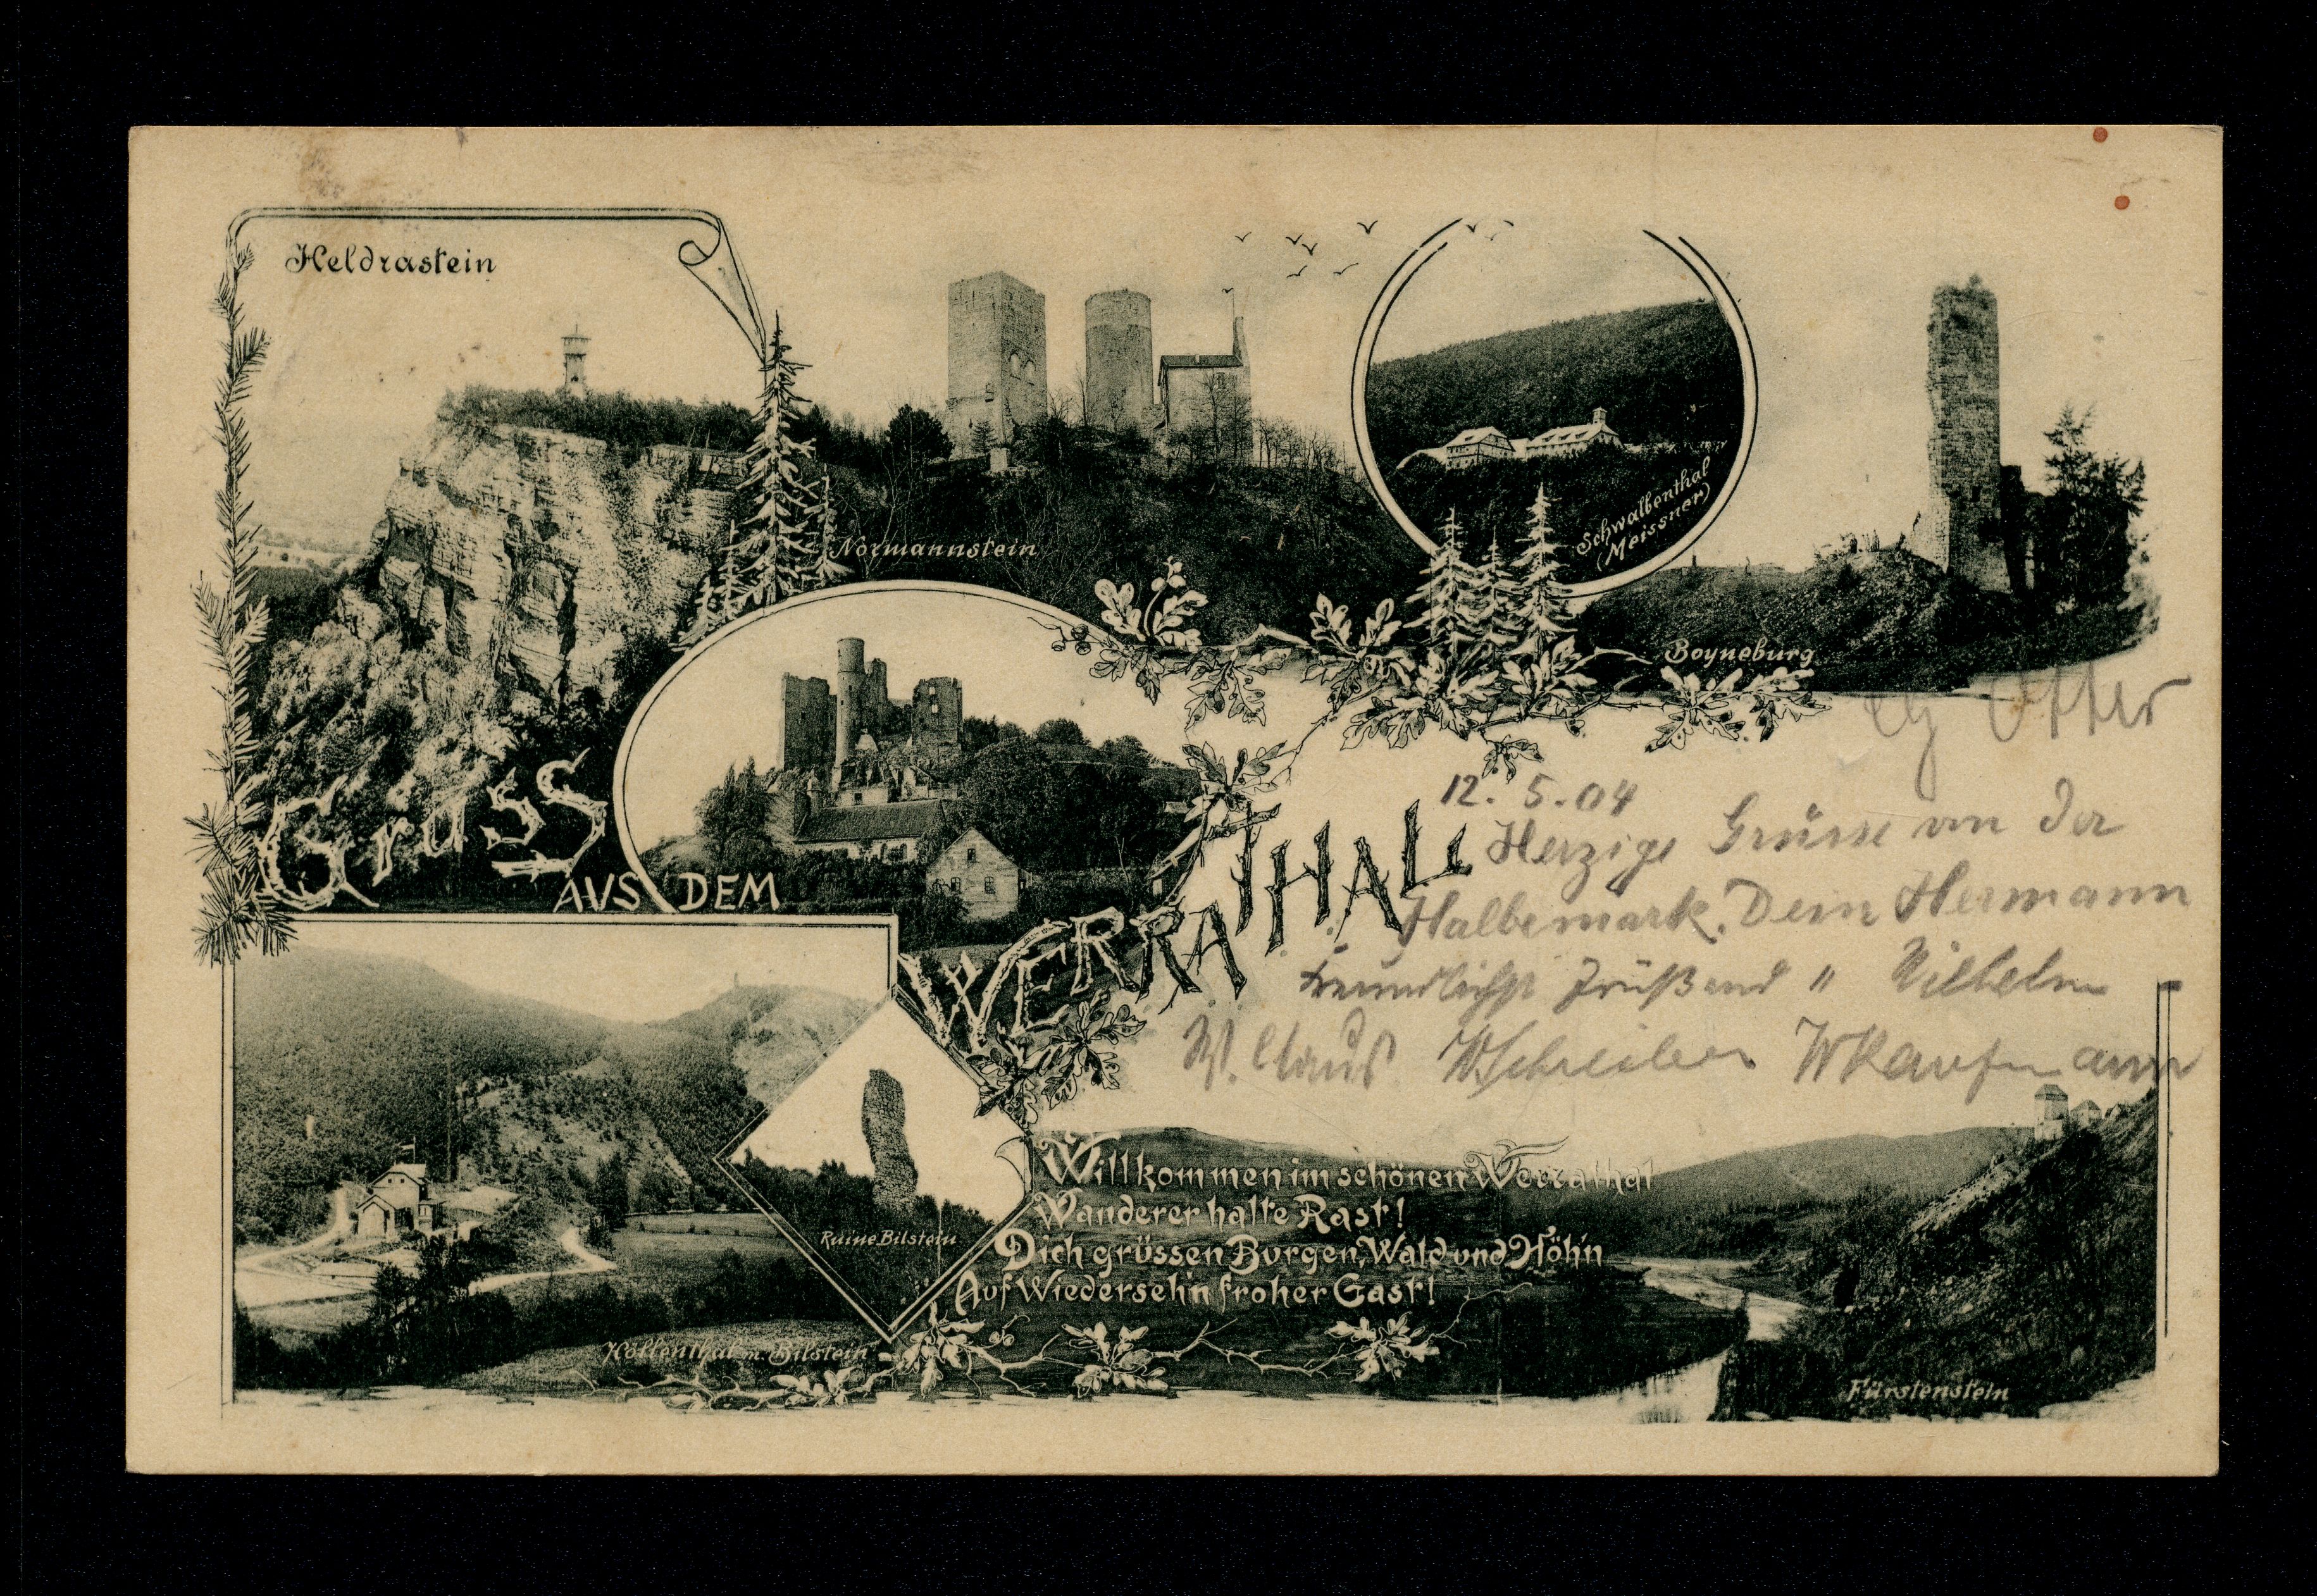 Heldrastein
Normannstein
Schwalbenthal
(Meissner)
Boyneburg
Gruss
AUS DEM
WERRATHAL
Otter
12. 5. 04
Herzige Grüsse von der
Halbemark. Dein Hermann
Grüßend " Wilhelm
W. Claus WSchreiber WKaufmann
Ruine Bilstein
Höllenthal m. Bilstein
Willkommen im schönen Werrathal
Wanderer halte Rast!
Dich grüssen Burgen, Wald und Höh'n
Auf Wiederseh'n froher Gast!
Fürstenstein